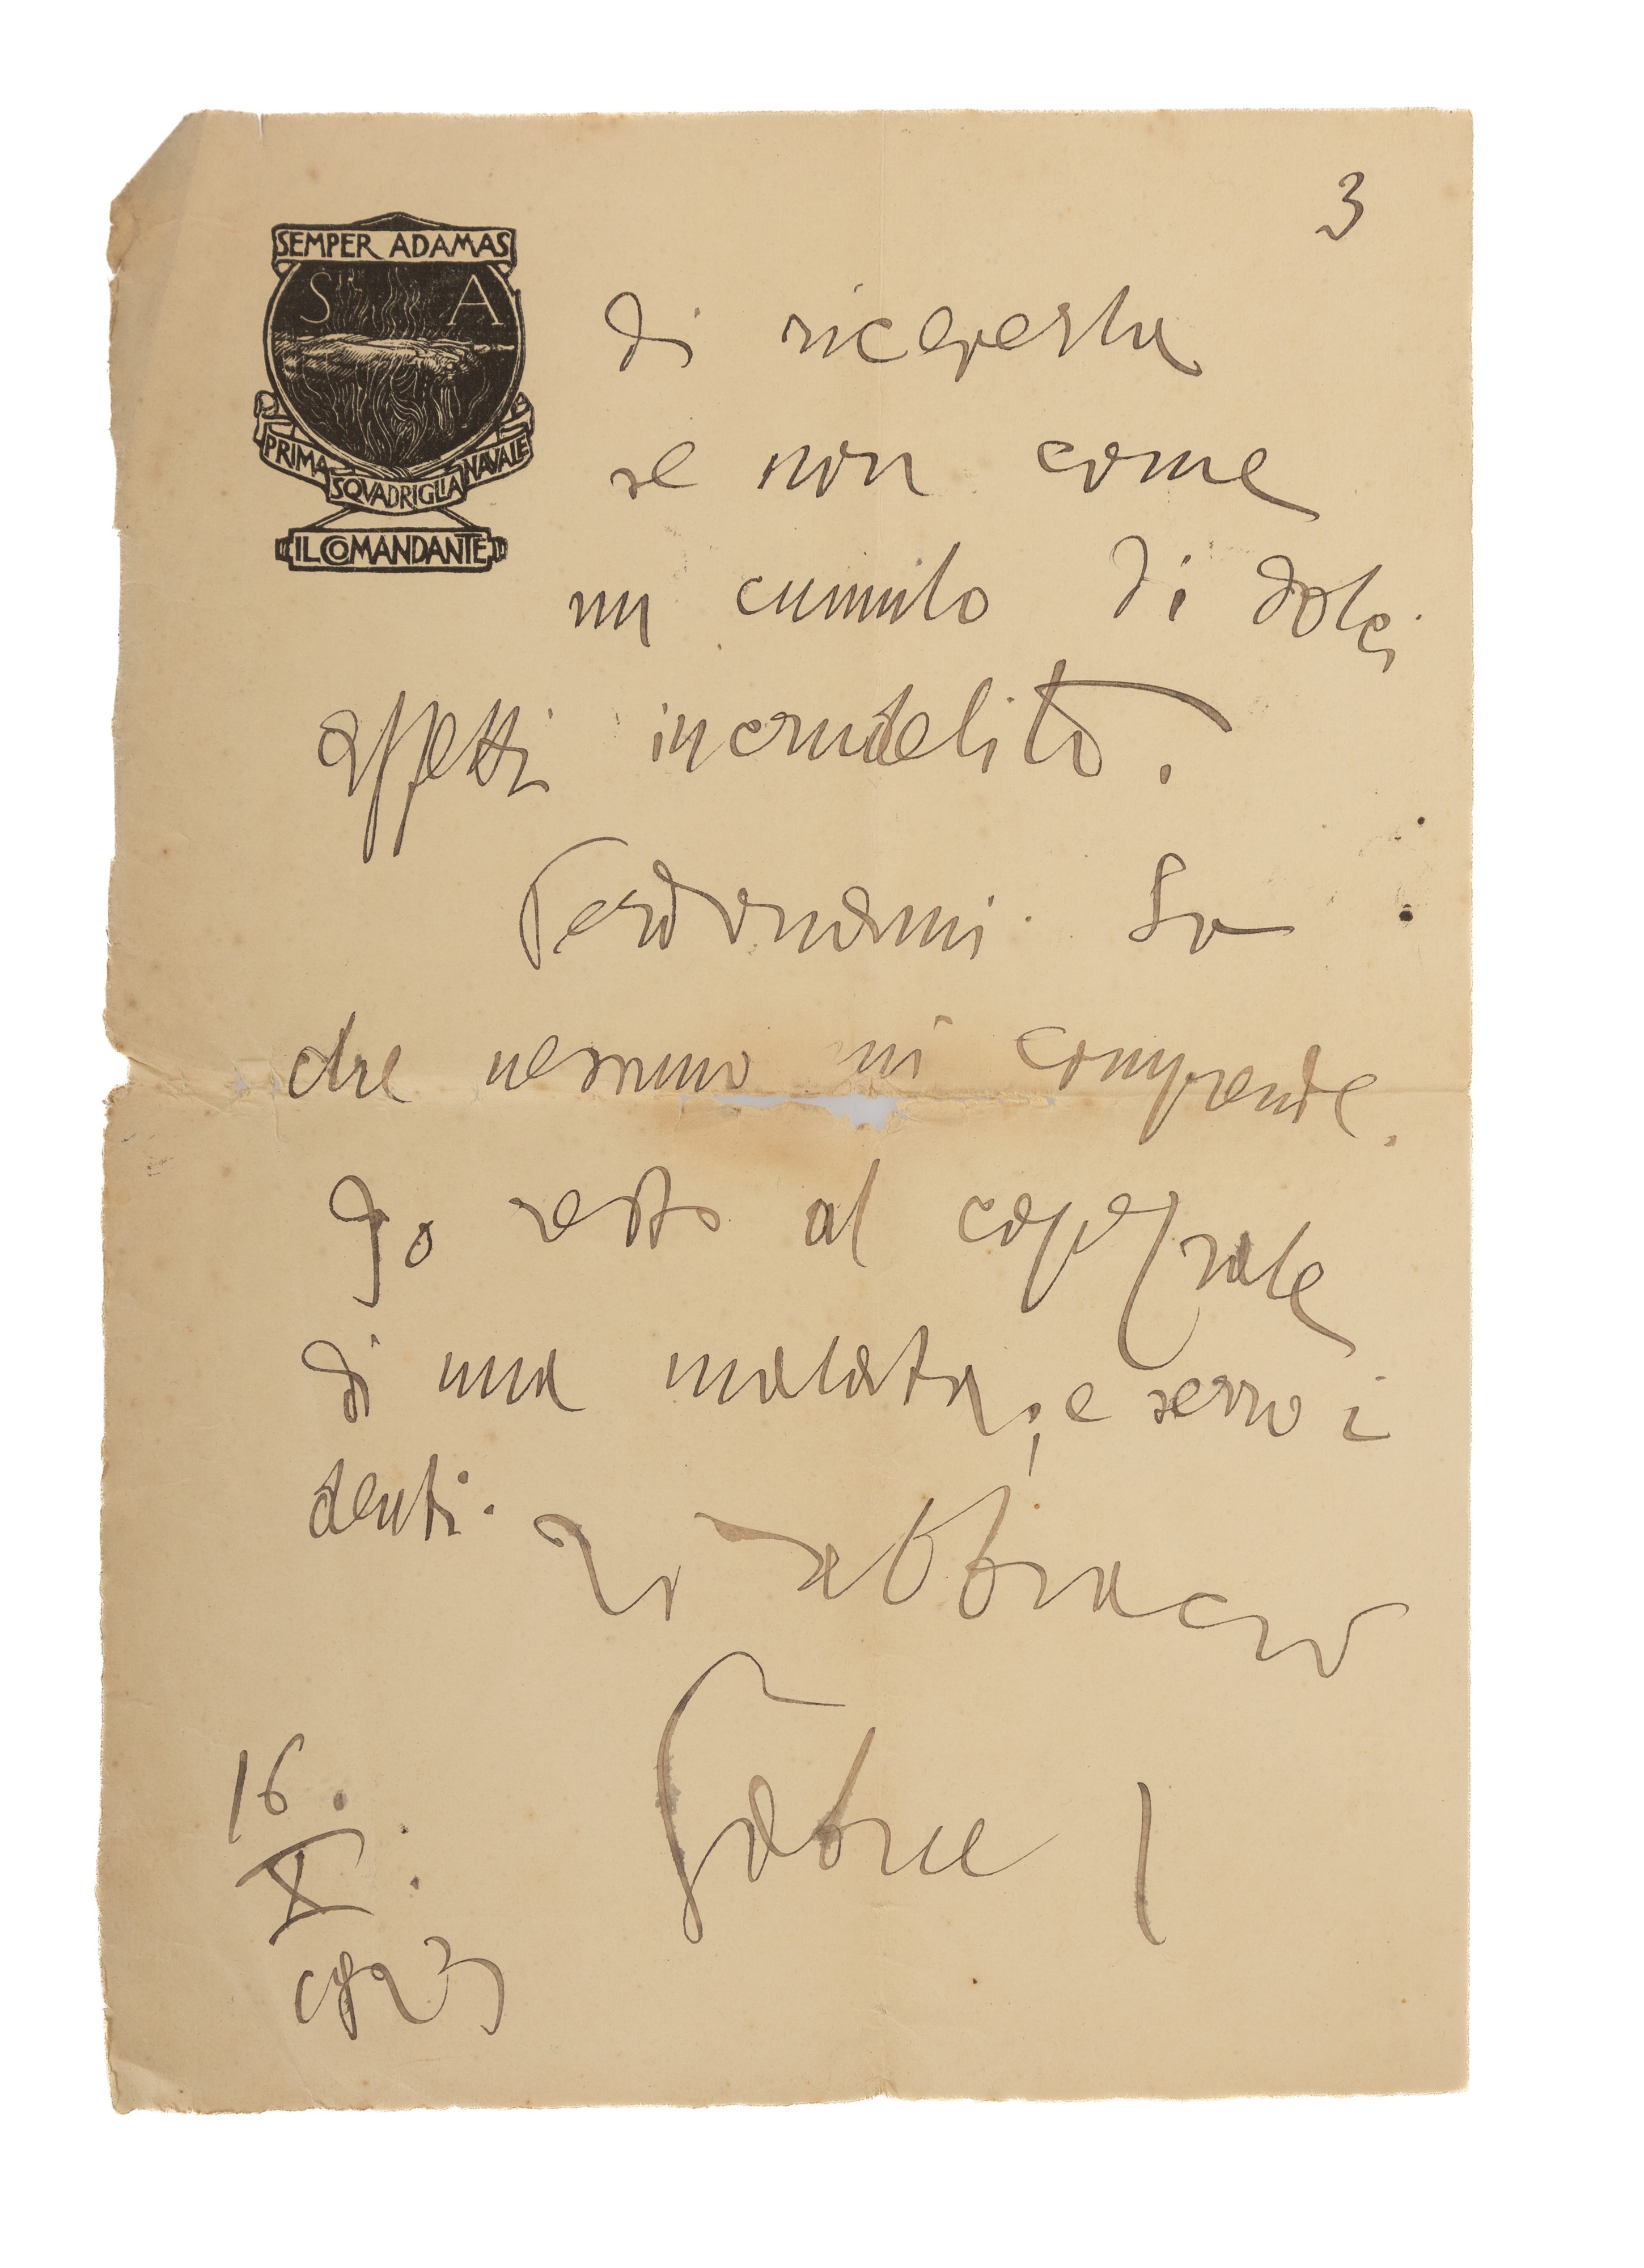 3
SEMPER ADAMAS
S A
PRIMA SQVADRIGLIA NAVALE
IL COMANDANTE
di
se non come
un cumulo di dolci
affetti incrudelito.
Perdonami. So
che nessuno mi comprende.
Io resto al capezzale
di una malata; e serro i
denti. Ti abbraccio
16. X. 1923